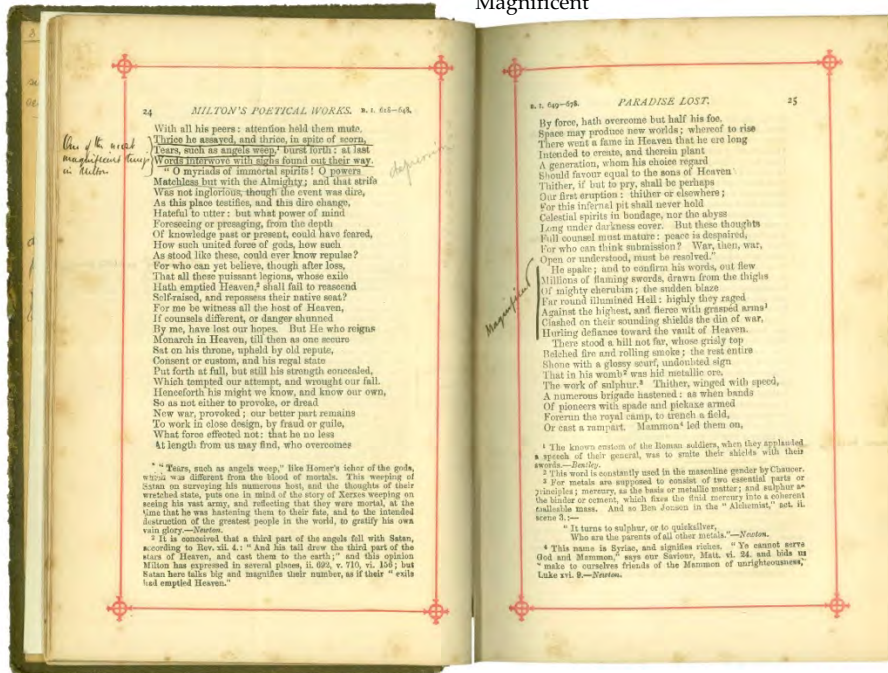 Magnificent
24 MILTON'S POETICAL WORKS. B. I. 618—648.
With all his peers: attention held them mute.
Thrice he assayed, and thrice, in spite of scorn,
Tears, such as angels weep,¹ burst forth: at last
Words interwove with sighs found out their way.
"O myriads of immortal spirits! O powers
Matchless but with the Almighty; and that strife
Was not inglorious, though the event was dire,
As this place testifies, and this dire change,
Hateful to utter: but what power of mind
Foreseeing or presaging, from the depth
Of knowledge past or present, could have feared,
How such united force of gods, how such
As stood like these, could ever know repulse?
For who can yet believe, though after loss,
That all these puissant legions, whose exile
Hath emptied Heaven,² shall fail to reascend
Self-raised, and repossess their native seat?
For me be witness all the host of Heaven,
If counsels different, or danger shunned
By me, have lost our hopes. But He who reigns
Monarch in Heaven, till then as one secure
Sat on his throne, upheld by old repute,
Consent or custom, and his regal state
Put forth at full, but still his strength concealed,
Which tempted our attempt, and wrought our fall.
Henceforth his might we know, and know our own,
So as not either to provoke, or dread
New war, provoked; our better part remains
To work in close design, by fraud or guile,
What force effected not: that he no less
At length from us may find, who overcomes
One of the most
magnificent things
in Milton
depression
¹ "Tears, such as angels weep," like Homer's ichor of the gods,
which was different from the blood of mortals. This weeping of
Satan on surveying his numerous host, and the thoughts of their
wretched state, puts one in mind of the story of Xerxes weeping on
seeing his vast army, and reflecting that they were mortal, at the
time that he was hastening them to their fate, and to the intended
destruction of the greatest people in the world, to gratify his own
vain glory.—Newton.
² It is conceived that a third part of the angels fell with Satan,
according to Rev. xii. 4.: "And his tail drew the third part of the
stars of Heaven, and cast them to the earth;" and this opinion
Milton has expressed in several places, ii. 692, v. 710, vi. 156; but
Satan here talks big and magnifies their number, as if their "exile
had emptied Heaven."
B. I. 649—678. PARADISE LOST. 25
By force, hath overcome but half his foe.
Space may produce new worlds; whereof so rise
There went a fame in Heaven that he ere long
Intended to create, and therein plant
A generation, whom his choice regard
Should favour equal to the sons of Heaven
Thither, if but to pry, shall be perhaps
Our first eruption: thither or elsewhere;
For this infernal pit shall never hold
Celestial spirits in bondage, nor the abyss
Long under darkness cover. But these thoughts
Full counsel must mature: peace is despaired,
For who can think submission? War, then, war,
Open or understood, must be resolved."
He spake; and to confirm his words, out flew
Millions of flaming swords, drawn from the thighs
Of mighty cherubim; the sudden blaze
Far round illumined Hell: highly they raged
Against the highest, and fierce with grasped arms¹
Clashed on their sounding shields the din of war,
Hurling defiance toward the vault of Heaven.
There stood a hill not far, whose grisly top
Belched fire and rolling smoke; the rest entire
Shone with a glossy scurf, undoubted sign
That in his womb² was hid metallic ore,
The work of sulphur.³ Thither, winged with speed,
A numerous brigade hastened: as when bands
Of pioneers with spade and pickaxe armed
Forerun the royal camp, to trench a field,
Or cast a rampart. Mammon⁴ led them on,
Magnificent
¹ The known custom of the Roman soldiers, when they applauded
a speech of their general, was to smite their shields with their
swords.—Bentley.
² This word is constantly used in the masculine gender by Chaucer.
³ For metals are supposed to consist of two essential parts or
principles; mercury, as the basis or metallic matter; and sulphur as
the binder or cement, which fixes the fluid mercury into a coherent
malleable mass. And so Ben Jonson in the "Alchemist," act. ii.
scene 3.:—
"It turns to sulphur, or to quicksilver,
Who are the parents of all other metals."—Newton.
⁴ This name is Syriac, and signifies riches. "Ye cannot serve
God and Mammon," says our Saviour, Matt. vi. 24. and bids us
"make to ourselves friends of the Mammon of unrighteousness,"
Luke xvi. 9.—Newton.